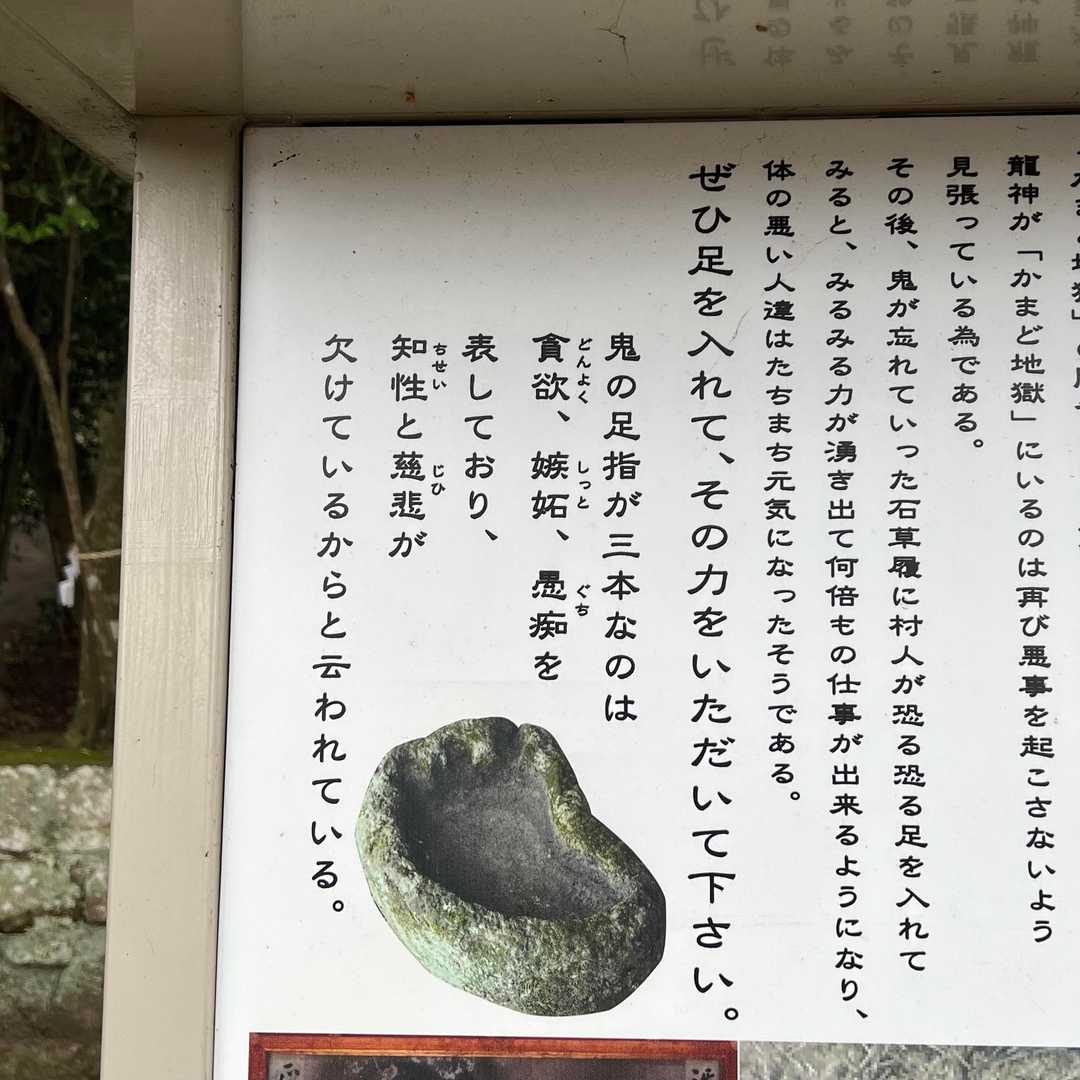 龍神が「かまど地獄」にいるのは再び悪事を起こさないよう
見張っている為である。
その後、鬼が忘れていった石草履に村人が恐る恐る足を入れて
みると、みるみる力が湧き出て何倍もの仕事が出来るようになり、
体の悪い人達はたちまち元気になったそうである。
ぜひ足を入れて、その力をいただいて下さい。
鬼の足指が三本なのは
どんよく しっと ぐち
貪欲、嫉妬、愚痴を
表しており、
ちせい じひ
知性と慈悲が
欠けているからと云われている。